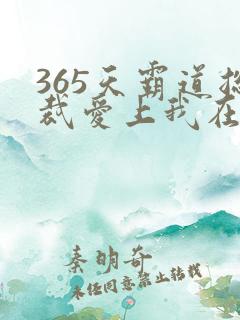 365天霸道总
裁爱上我在
秦明奇
未经同意禁止转载